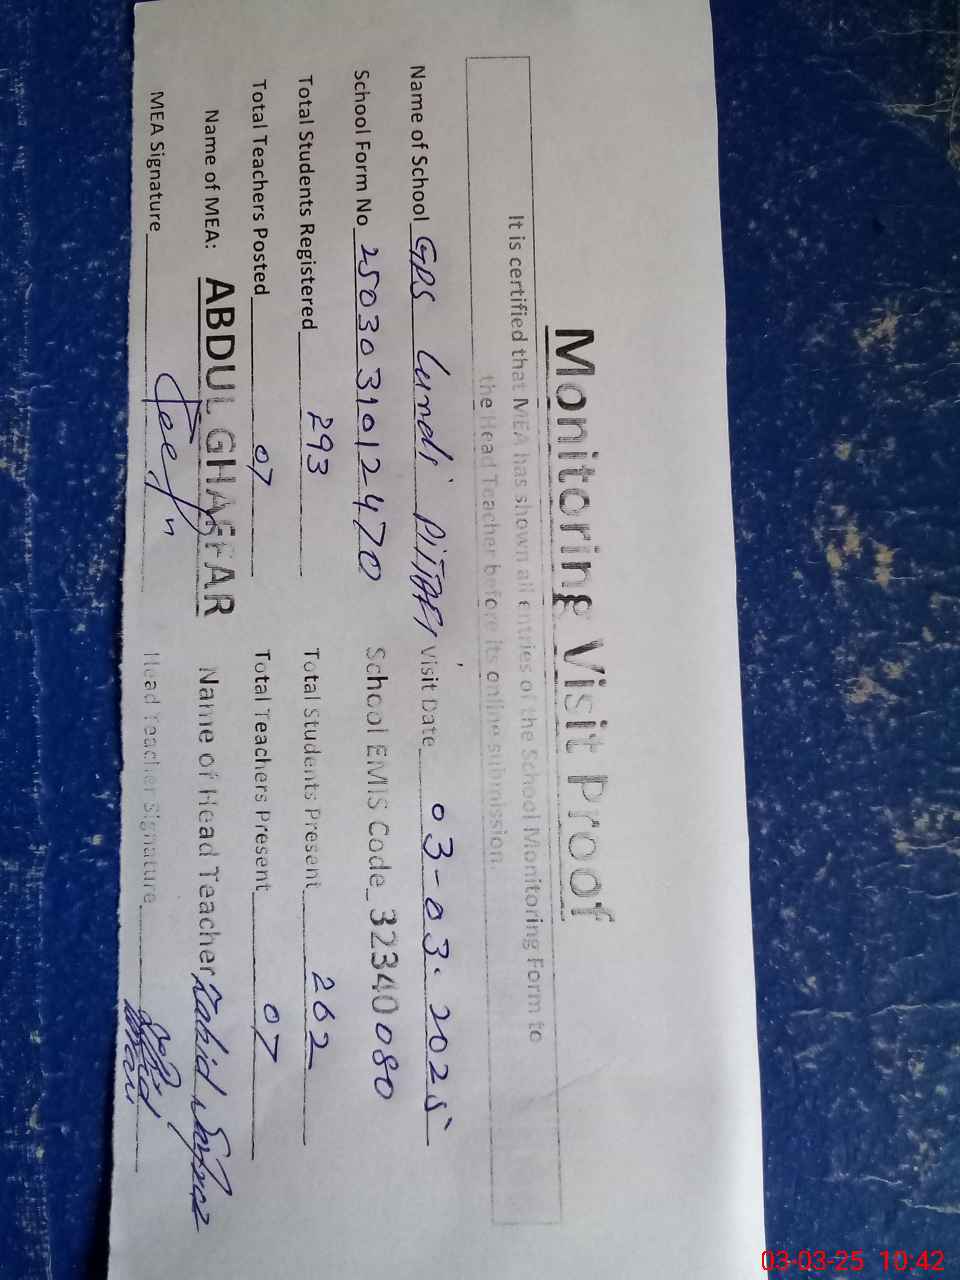 Monitoring Visit Proof
It is certified that MEA has shown all entries of the School Monitoring Form to
the Head Teacher before its online submission.
Name of School GPS Lundi PITAFI Visit Date 03-03-2025
School Form No 2503031012470 School EMIS Code 32340080
Total Students Registered 293 Total Students Present 262
Total Teachers Posted 07 Total Teachers Present 07
Name of MEA: ABDUL GHAFFAR Name of Head Teacher
MEA Signature Head Teacher Signature
03-03-25 10:42